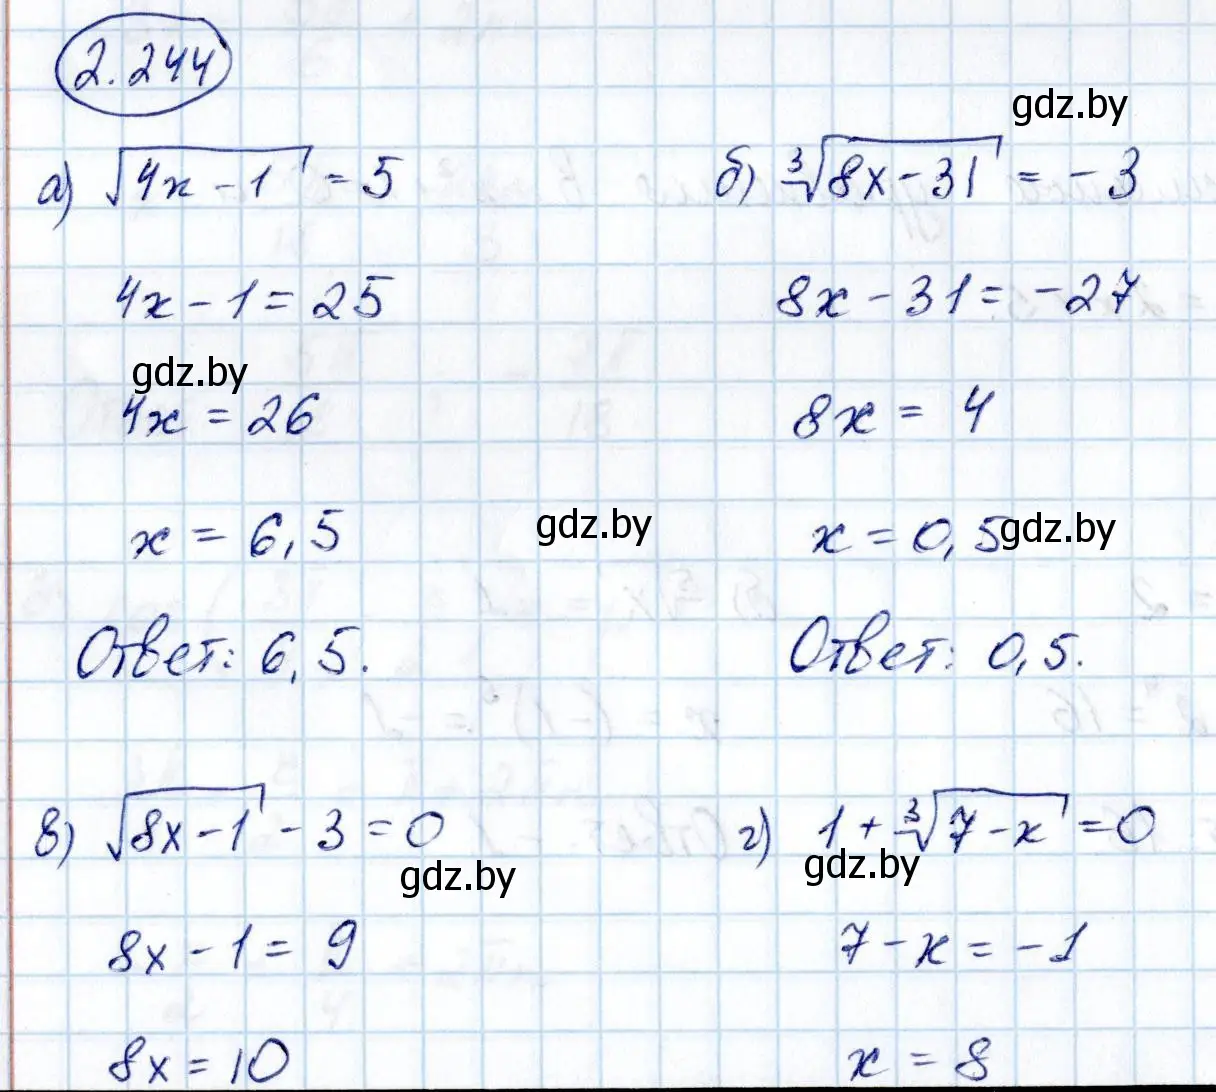 2.244
а) √(4x - 1) = 5
4x - 1 = 25
4x = 26
x = 6,5
Ответ: 6,5.
gdz.by
б) ∛(8x - 31) = -3
8x - 31 = -27
8x = 4
x = 0,5
Ответ: 0,5.
gdz.by
gdz.by
gdz.by
в) √(8x - 1) - 3 = 0
8x - 1 = 9
8x = 10
gdz.by
г) 1 + ∛(7 - x) = 0
7 - x = -1
x = 8
gdz.by